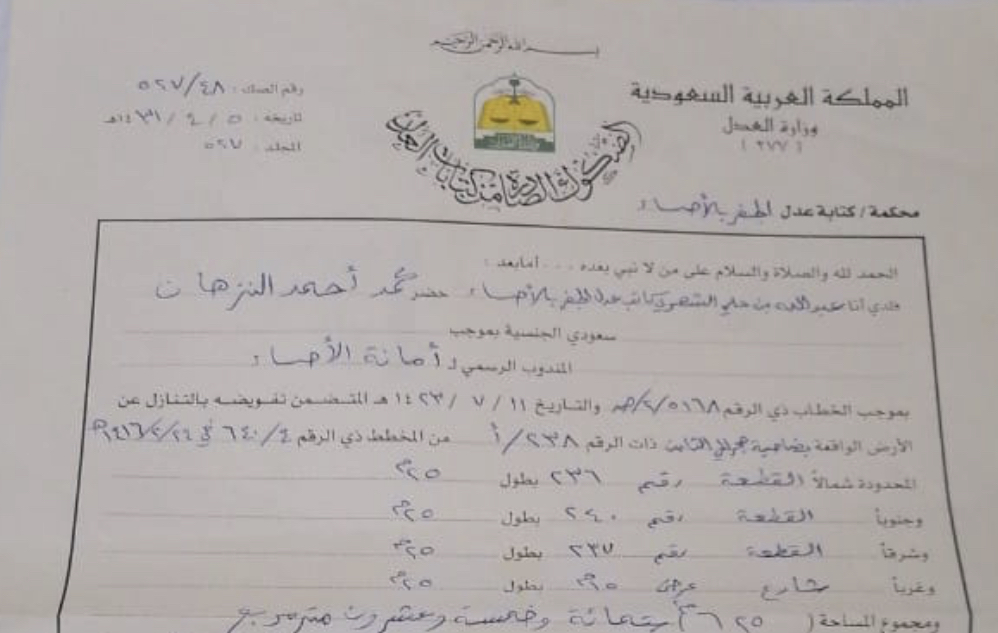 بسم الله الرحمن الرحيم
المملكة العربية السعودية
وزارة العدل
( ٢٧٧ )
رقم الصك : ٥٢٧/٤٨
تاريخه : ٥ / ٤ / ١٤٣١هـ
المجلد : ٥٢٧
الصكوك الصادرة من كتابات العدل
محكمة / كتابة عدل الجفر بالأحساء
الحمد لله والصلاة والسلام على من لا نبي بعده ... أما بعد :
فلدي أنا عبد الله بن علي الشهري كاتب عدل الجفر بالأحساء حضر محمد أحمد النزهان
سعودي الجنسية بموجب
المندوب الرسمي لـ أمانة الأحساء
بموجب الخطاب ذي الرقم ٢/٥١٦٨/ص والتاريخ ١١ / ٧ / ١٤٢٣ هـ المتضمن تفويضه بالتنازل عن
الأرض الواقعة بضاحية هجر الثامن ذات الرقم ٢٣٨/أ من المخطط ذي الرقم ٦٤٠/٤ في
المحدودة شمالاً القطعة رقم ٢٣٦ بطول ٢٥م
وجنوباً القطعة رقم ٢٤٠ بطول ٢٥م
وشرقاً القطعة رقم ٢٣٧ بطول ٢٥م
وغرباً شارع عرض ٢٥م بطول ٢٥م
ومجموع المساحة ( ٦٢٥م ) ستمائة وخمسة وعشرون متر مربع